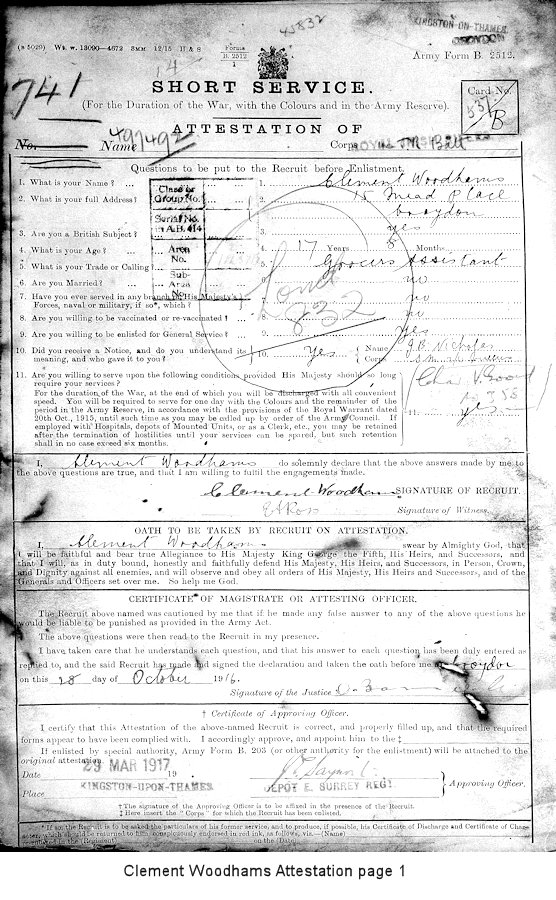 45832
KINGSTON-ON-THAMES
CROYDON
(B 5029) Wt. w. 13090—4672 3MM 12/15 H & S
Forms
B. 2512
1
Army Form B. 2512.
741
14
SHORT SERVICE.
Card No.
B
(For the Duration of the War, with the Colours and in the Army Reserve).
ATTESTATION OF
No.
Name
497492
Corps
Questions to be put to the Recruit before Enlistment.
1. What is your Name? ...
1. Clement Woodhams
2. What is your full Address?
2. 15 Mead Place
Croydon
Class or
Group No.
Serial No.
in A.B. 414
Area
No.
Sub-
Area
No.
3. Are you a British Subject?
3. yes
4. What is your Age?
4. 17 Years 8 Months
5. What is your Trade or Calling?
5. Grocers Assistant
6. Are you Married?
6. no
832
7. Have you ever served in any branch of His Majesty's
Forces, naval or military, if so*, which?
7. no
8. Are you willing to be vaccinated or re-vaccinated?
8.
9. Are you willing to be enlisted for General Service?
9. yes
10. Did you receive a Notice, and do you understand its
meaning, and who gave it to you?
10. Yes
Name
Corps
11. Are you willing to serve upon the following conditions provided His Majesty should so long
require your services?
For the duration of the War, at the end of which you will be discharged with all convenient
speed. You will be required to serve for one day with the Colours and the remainder of the
period in the Army Reserve, in accordance with the provisions of the Royal Warrant dated
20th Oct., 1915, until such time as you may be called up by order of the Army Council. If
employed with Hospitals, depots of Mounted Units, or as a Clerk, etc., you may be retained
after the termination of hostilities until your services can be spared, but such retention
shall in no case exceed six months.
11. yes
I, Clement Woodhams do solemnly declare that the above answers made by me to
the above questions are true, and that I am willing to fulfil the engagements made.
Clement Woodhams SIGNATURE OF RECRUIT.
Signature of Witness.
OATH TO BE TAKEN BY RECRUIT ON ATTESTATION.
I, Clement Woodhams swear by Almighty God, that
I will be faithful and bear true Allegiance to His Majesty King George the Fifth, His Heirs, and Successors, and
that I will, as in duty bound, honestly and faithfully defend His Majesty, His Heirs, and Successors, in Person, Crown,
and Dignity against all enemies, and will observe and obey all orders of His Majesty, His Heirs and Successors, and of the
Generals and Officers set over me. So help me God.
CERTIFICATE OF MAGISTRATE OR ATTESTING OFFICER.
The Recruit above named was cautioned by me that if he made any false answer to any of the above questions he
would be liable to be punished as provided in the Army Act.
The above questions were then read to the Recruit in my presence.
I have taken care that he understands each question, and that his answer to each question has been duly entered as
replied to, and the said Recruit has made and signed the declaration and taken the oath before me at Croydon
on this 28 day of October 1916.
Signature of the Justice
† Certificate of Approving Officer.
I certify that this Attestation of the above-named Recruit is correct, and properly filled up, and that the required
forms appear to have been complied with. I accordingly approve, and appoint him to the ‡
If enlisted by special authority, Army Form B. 203 (or other authority for the enlistment) will be attached to the
original attestation.
Date 29 MAR 1917 19
Place KINGSTON-UPON-THAMES
DEPOT E. SURREY REGT.
Approving Officer.
† The signature of the Approving Officer is to be affixed in the presence of the Recruit.
‡ Here insert the "Corps" for which the Recruit has been enlisted.
* If so, the Recruit is to be asked the particulars of his former service, and to produce, if possible, his Certificate of Discharge and Certificate of
which should be returned to him conspicuously endorsed in red ink, as follows, viz.—(Name)
on the (Date)
Clement Woodhams Attestation page 1